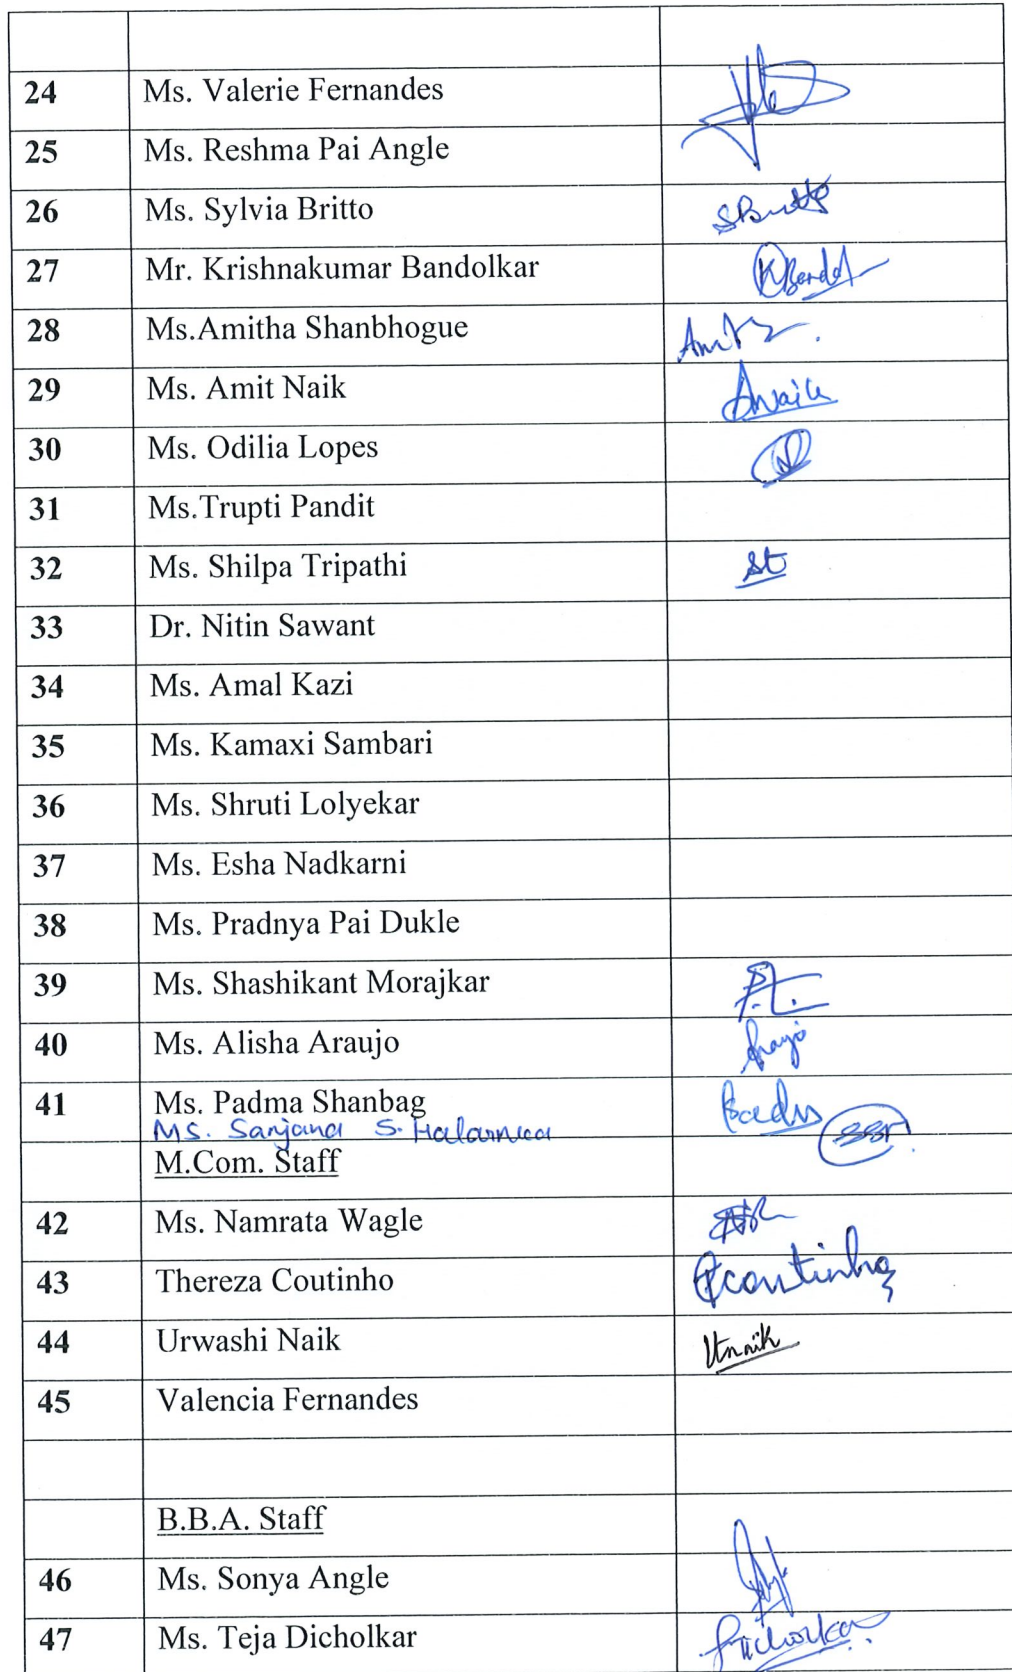 24 Ms. Valerie Fernandes
25 Ms. Reshma Pai Angle
26 Ms. Sylvia Britto SBritto
27 Mr. Krishnakumar Bandolkar
28 Ms.Amitha Shanbhogue
29 Ms. Amit Naik ANaik
30 Ms. Odilia Lopes
31 Ms.Trupti Pandit
32 Ms. Shilpa Tripathi St
33 Dr. Nitin Sawant
34 Ms. Amal Kazi
35 Ms. Kamaxi Sambari
36 Ms. Shruti Lolyekar
37 Ms. Esha Nadkarni
38 Ms. Pradnya Pai Dukle
39 Ms. Shashikant Morajkar
40 Ms. Alisha Araujo
41 Ms. Padma Shanbag
Ms. Sanjana S.
M.Com. Staff
42 Ms. Namrata Wagle
43 Thereza Coutinho Coutinho
44 Urwashi Naik
45 Valencia Fernandes
B.B.A. Staff
46 Ms. Sonya Angle
47 Ms. Teja Dicholkar